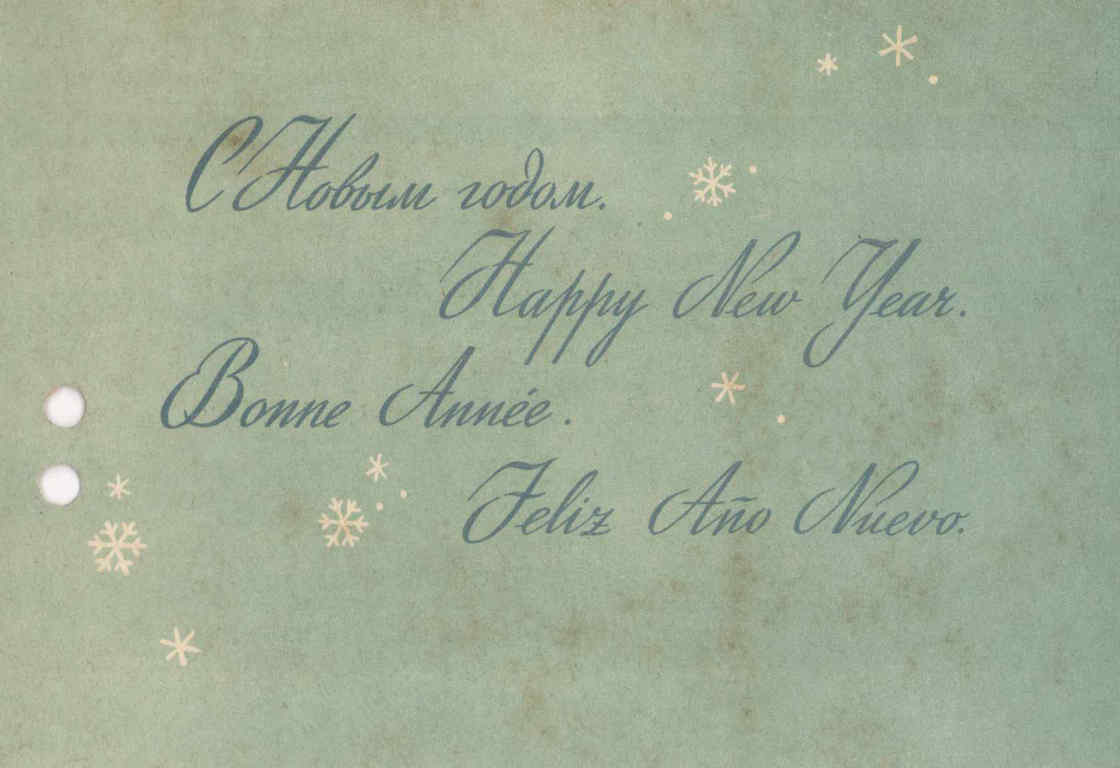 С Новым годом.
Happy New Year.
Bonne Année.
Feliz Año Nuevo.